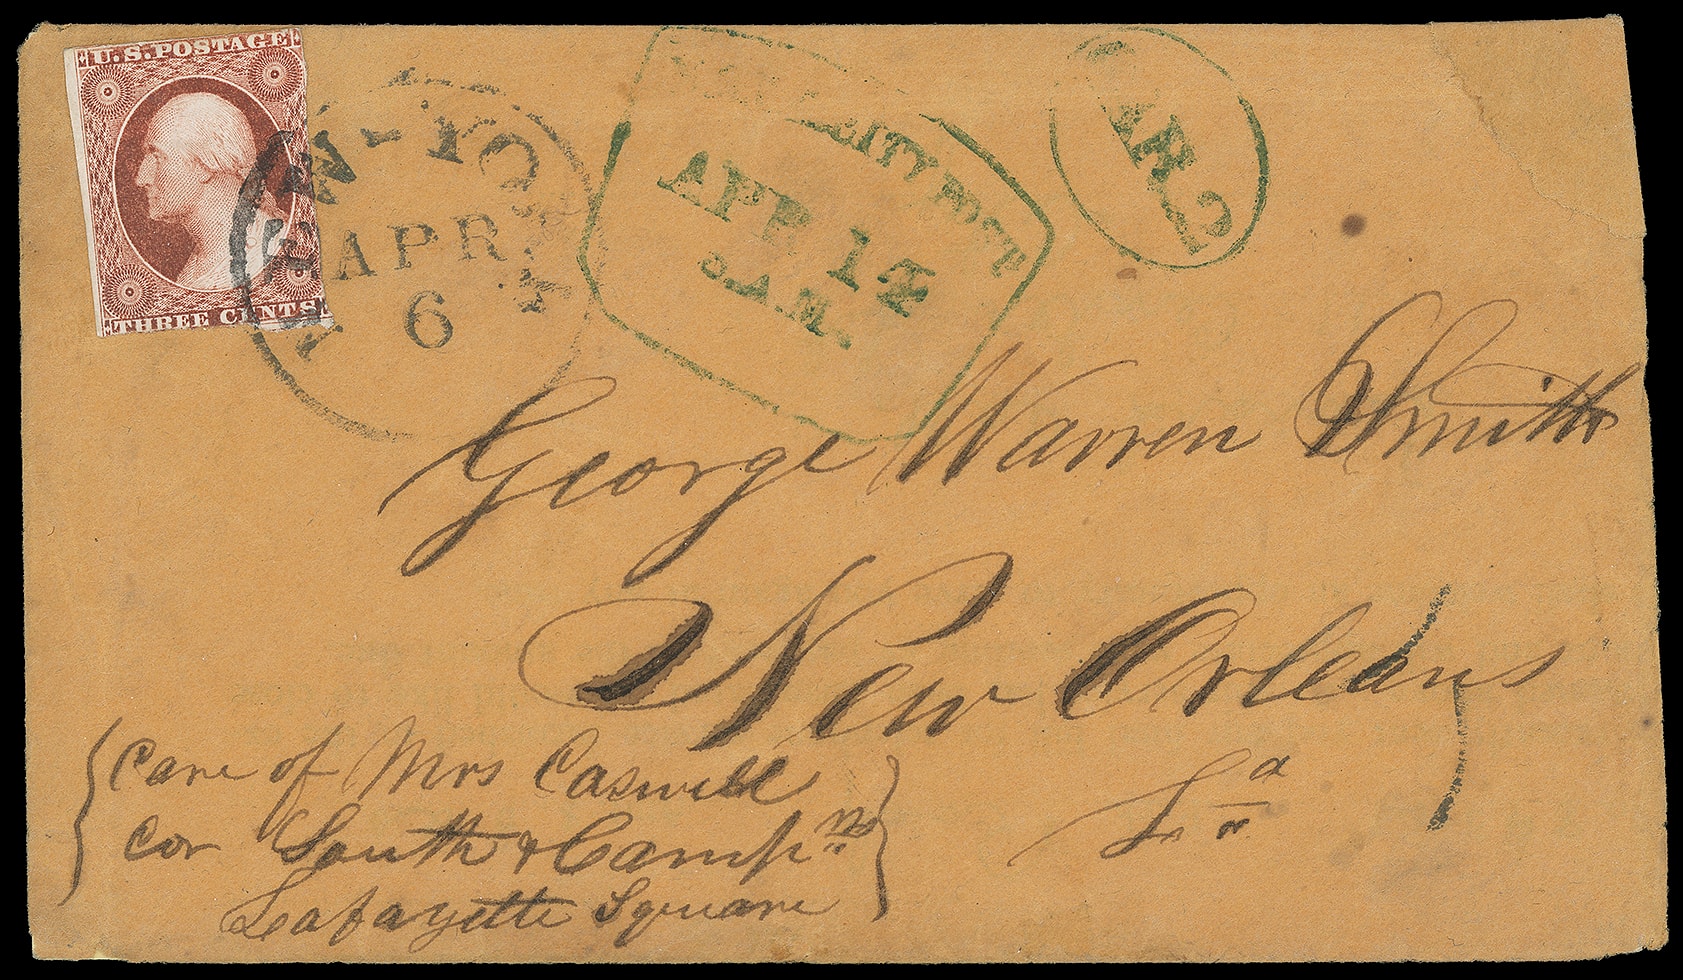 U.S. POSTAGE
THREE CENTS
NEW-YORK
APR
6
CITY POST
APR 14
A.M.
George Warren Smith
New Orleans
La
Care of Mrs Caswell
cor South & Camp sts
Lafayette Square